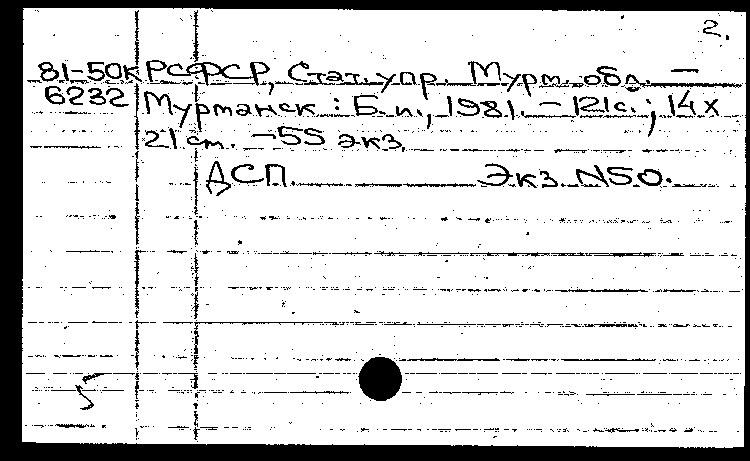 2.
81-50К РСФСР, Стат. упр. Мурм. обл. —
6232 Мурманск : Б.и., 1981. — 121с. ; 14х
21 см. — 55 экз.
ДСП. Экз. N50.
5